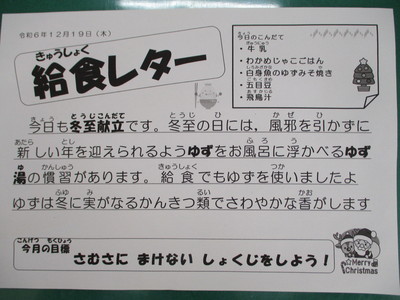 令和6年12月19日（木）
きゅうしょく
給食レター
今日のこんだて
・牛乳
・わかめじゃこごはん
・白身魚のゆずみそ焼き
・五目豆
・飛鳥汁
今日も冬至献立です。冬至の日には、風邪を引かずに
新しい年を迎えられるようゆずをお風呂に浮かべるゆず
湯の慣習があります。給食でもゆずを使いましたよ
ゆずは冬に実がなるかんきつ類でさわやかな香がします
こんげつ もくひょう
今月の目標
さむさに まけない しょくじをしよう！
Merry
Christmas